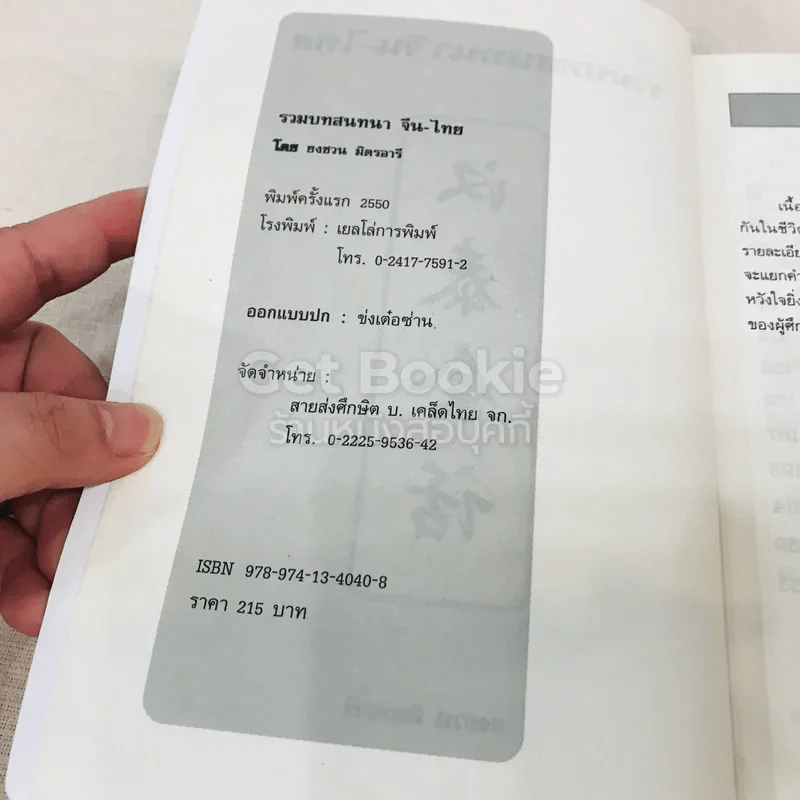 รวมบทสนทนา จีน-ไทย
โดย ยงชวน มิตรอารี
พิมพ์ครั้งแรก 2550
โรงพิมพ์ : เยลโล่การพิมพ์
โทร. 0-2417-7591-2
ออกแบบปก : ข่งเต๋อซ่าน
จัดจำหน่าย :
สายส่งศึกษิต บ. เคล็ดไทย จก.
โทร. 0-2225-9536-42
ISBN 978-974-13-4040-8
ราคา 215 บาท
Get Bookie
ร้านหนังสือบุคกี้
กันในชีวิ
รายละเอีย
จะแยกคำ
หวังใจยิ่ง
ของผู้ศึก